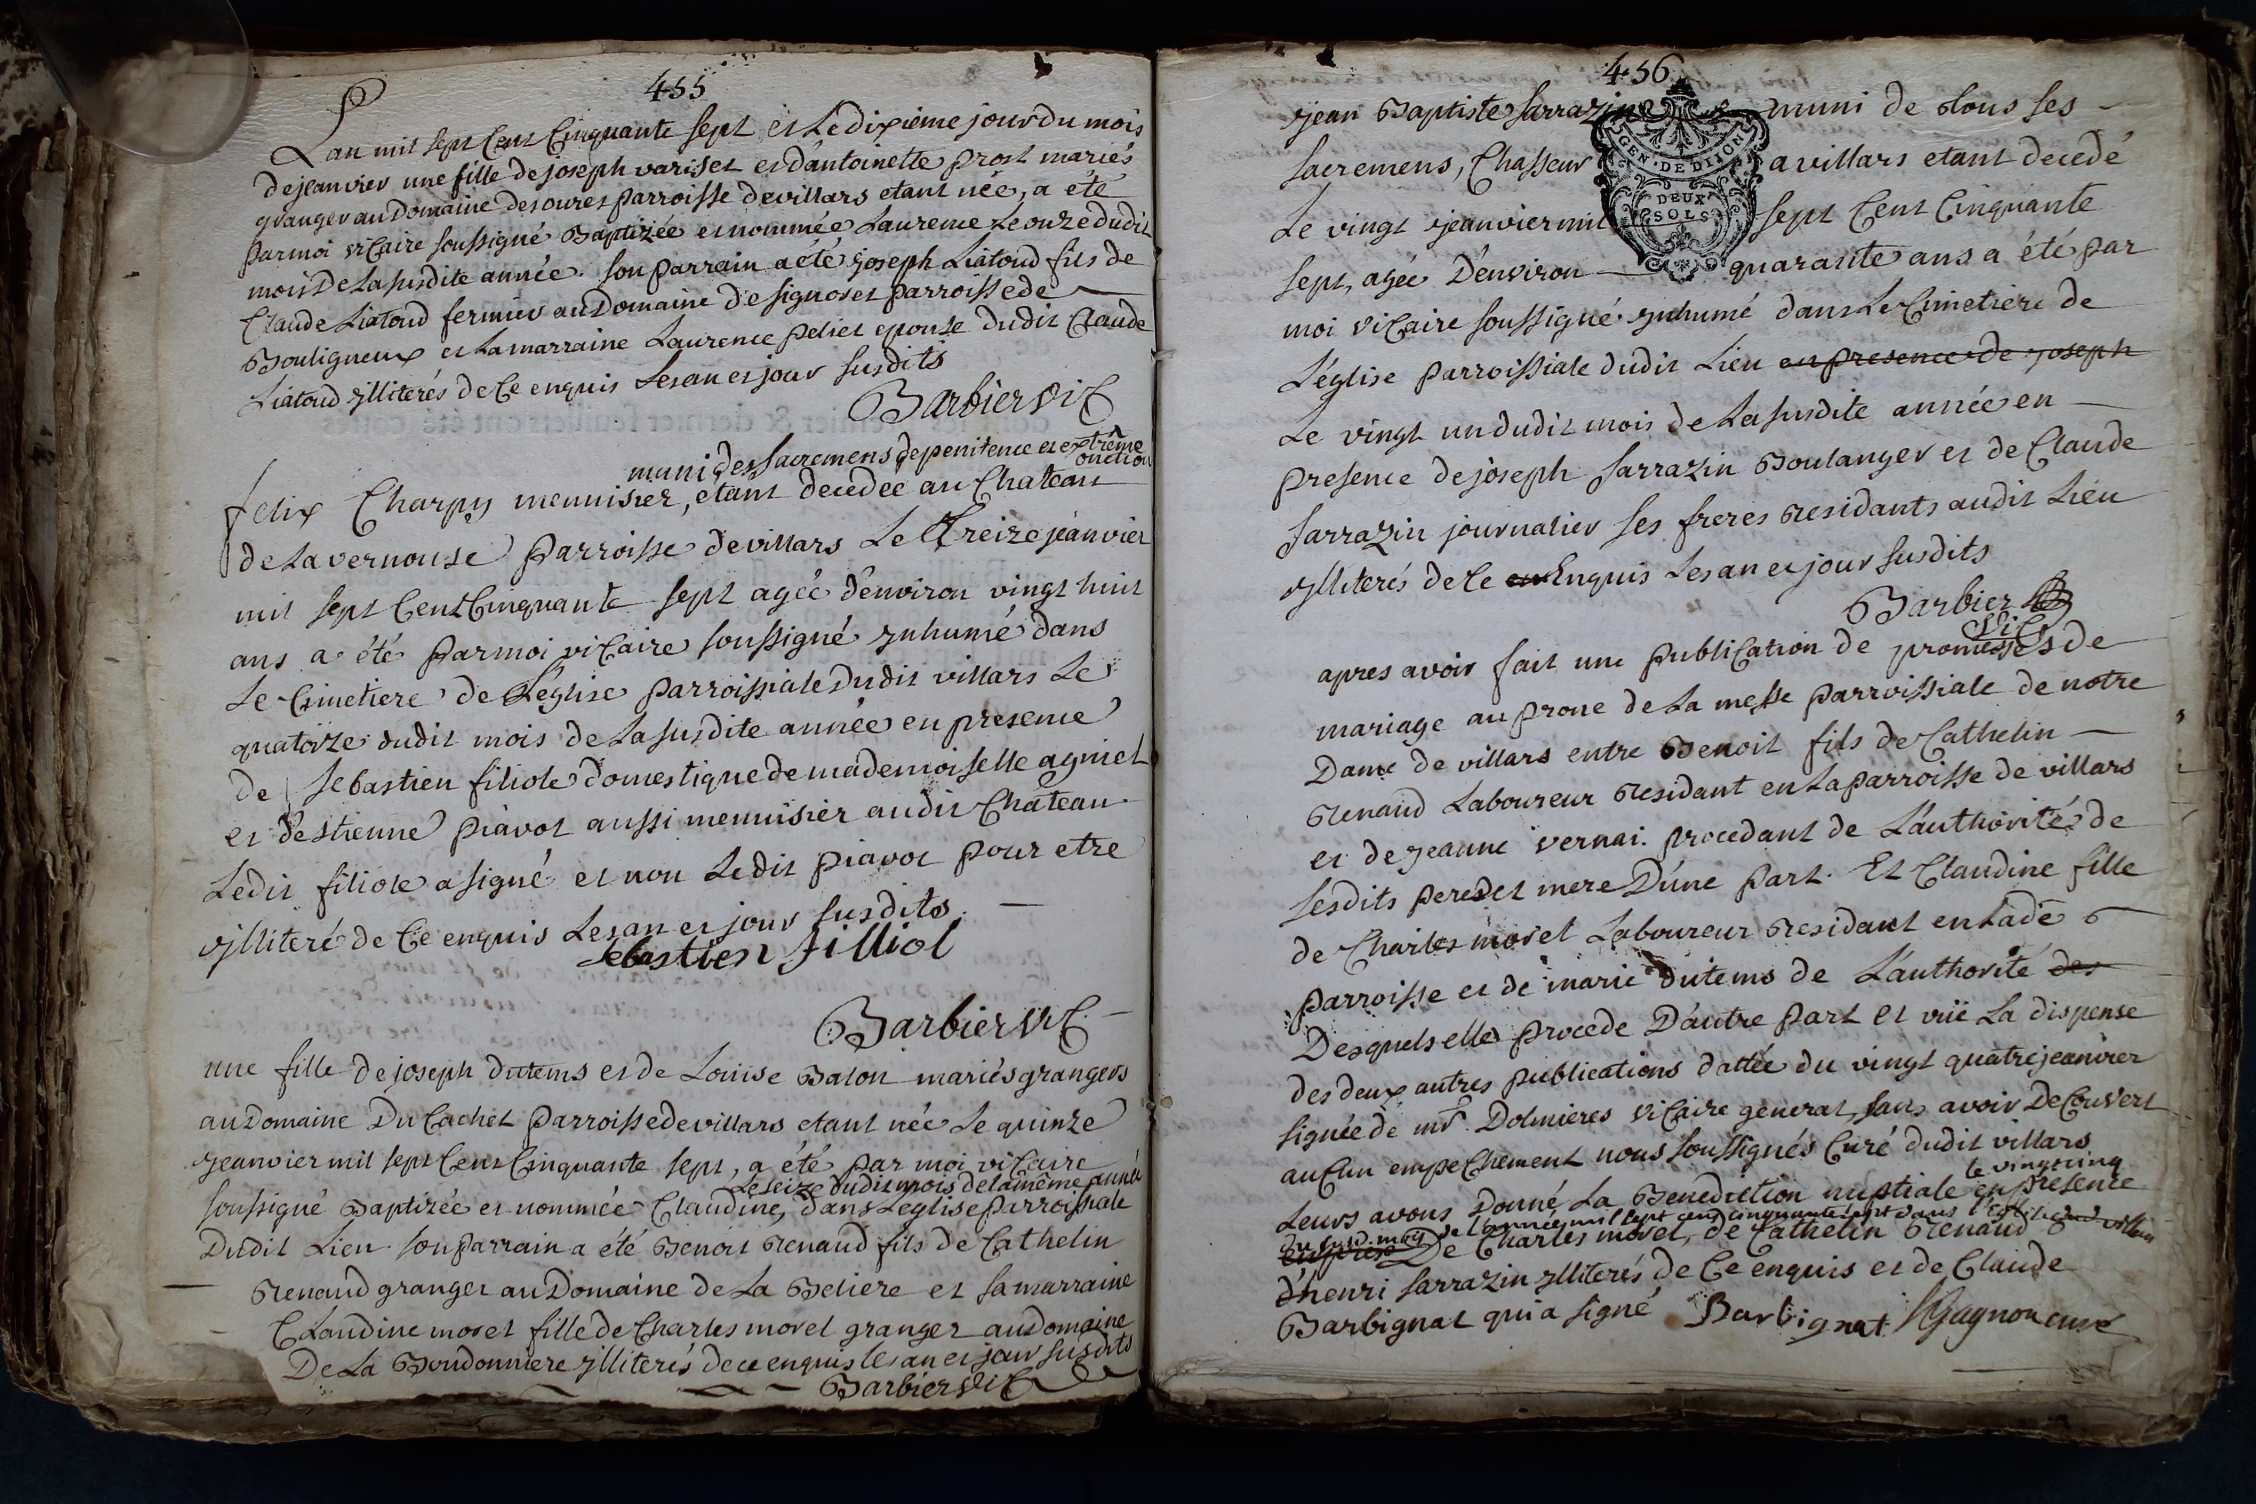 455
Lan mil sept Cent Cinquante sept et Le dixième jour du mois
de jeanvier une fille de joseph variset et d'antoinette prost mariés
granger au Domaine des oures parroisse de villars etant née, a été
par moi viCaire soussigné Baptizée et nommée Laurence Le onze dudit
mois De La susdite année. son parrain a été joseph Liatoud fils de
Claude Liatoud fermier au Domaine de signoret parroisse de
Bouligneux et La marraine Laurence peliet epouse dudit Claude
Liatoud illiterés de Ce enquis Les an et jour susdits
Barbier viC
muni des sacremens de penitence et extrême
onction
felix Charpy mennisier, etant decedée au Chateau
de La vernouse parroisse de villars Le Treize jeanvier
mil sept Cent Cinquante sept agée d'environ vingt huit
ans a été par moi viCaire soussigné inhumé dans
Le Cimetiere de L'eglise parroissiale dudit villars Le
quatorze dudit mois de La susdite année en presence
de sebastien filiole domestique de mademoiselle agniel
et d'estienne piavot aussi mennisier audit Château
Ledit filiole a signé et non Ledit piavot pour etre
illiteré de Ce enquis Les an et jour susdits
sebastien filliol
Barbier viC
une fille de joseph dutems et de Louise Balon mariés grangers
au Domaine Du Cachet parroisse de villars etant née Le quinze
jeanvier mil sept Cent Cinquante sept, a été par moi viCaire
Le seize dudit mois de la même année
soussigné Baptizée et nommée Claudine, dans L'eglise parroissiale
Dudit Lieu son parrain a été Benoit Renaud fils de Cathelin
Renaud granger au Domaine de La Beliere et sa marraine
CLaudine morel fille de Charles morel granger au Domaine
De La Boudonniere illiterés de ce enquis les an et jour susdits
Barbier viC
456
jean Baptiste sarrazin muni de tous ses
sacremens, Chasseur a villars etant decedé
Le vingt jeanvier mil sept Cent Cinquante
sept, agée D'environ quarante ans a été par
GEN · DE DIJON
DEUX
SOLS
moi viCaire soussigné inhumé dans Le Cimetiere de
L'église parroissiale dudit Lieu en presence de joseph
Le vingt un dudit mois de La susdite année en
presence de joseph sarrazin Boulanger et de Claude
sarrazin journalier ses freres residants audit Lieu
illiterés de Ce en Enquis Les an et jour susdits
Barbier
viC
apres avoir fait une publiCation de promesses de
mariage au prone de La messe parroissiale de notre
Dame de villars entre Benoit fils de Cathelin
Renaud Laboureur residant en La parroisse de villars
et de jeanne vernai. procedant de L'authorité de
sesdits pere et mere D'une part. Et Claudine fille
de Charles morel Laboureur residant en Ladte
parroisse et de marie dutems de L'authorité des
Desquels elle procede D'autre part et vüe La dispense
des deux autres publications dattée du vingt quatre jeanvier
signée de mr. Dolmieres viCaire general, sans avoir DeCouvert
auCun empeChement nous soussignés Curé dudit villars
Leurs avons Donné La Benediction nuptiale en presence
le vingt cinq
du susd. moy de l'année mil sept cent cinquante sept dans l'Eglise dud villars
De Charles morel, de Cathelin Renaud
d'henri sarrazin illiterés de Ce enquis et de Claude
Barbignat qui a signé Barbignat Gagnon curé